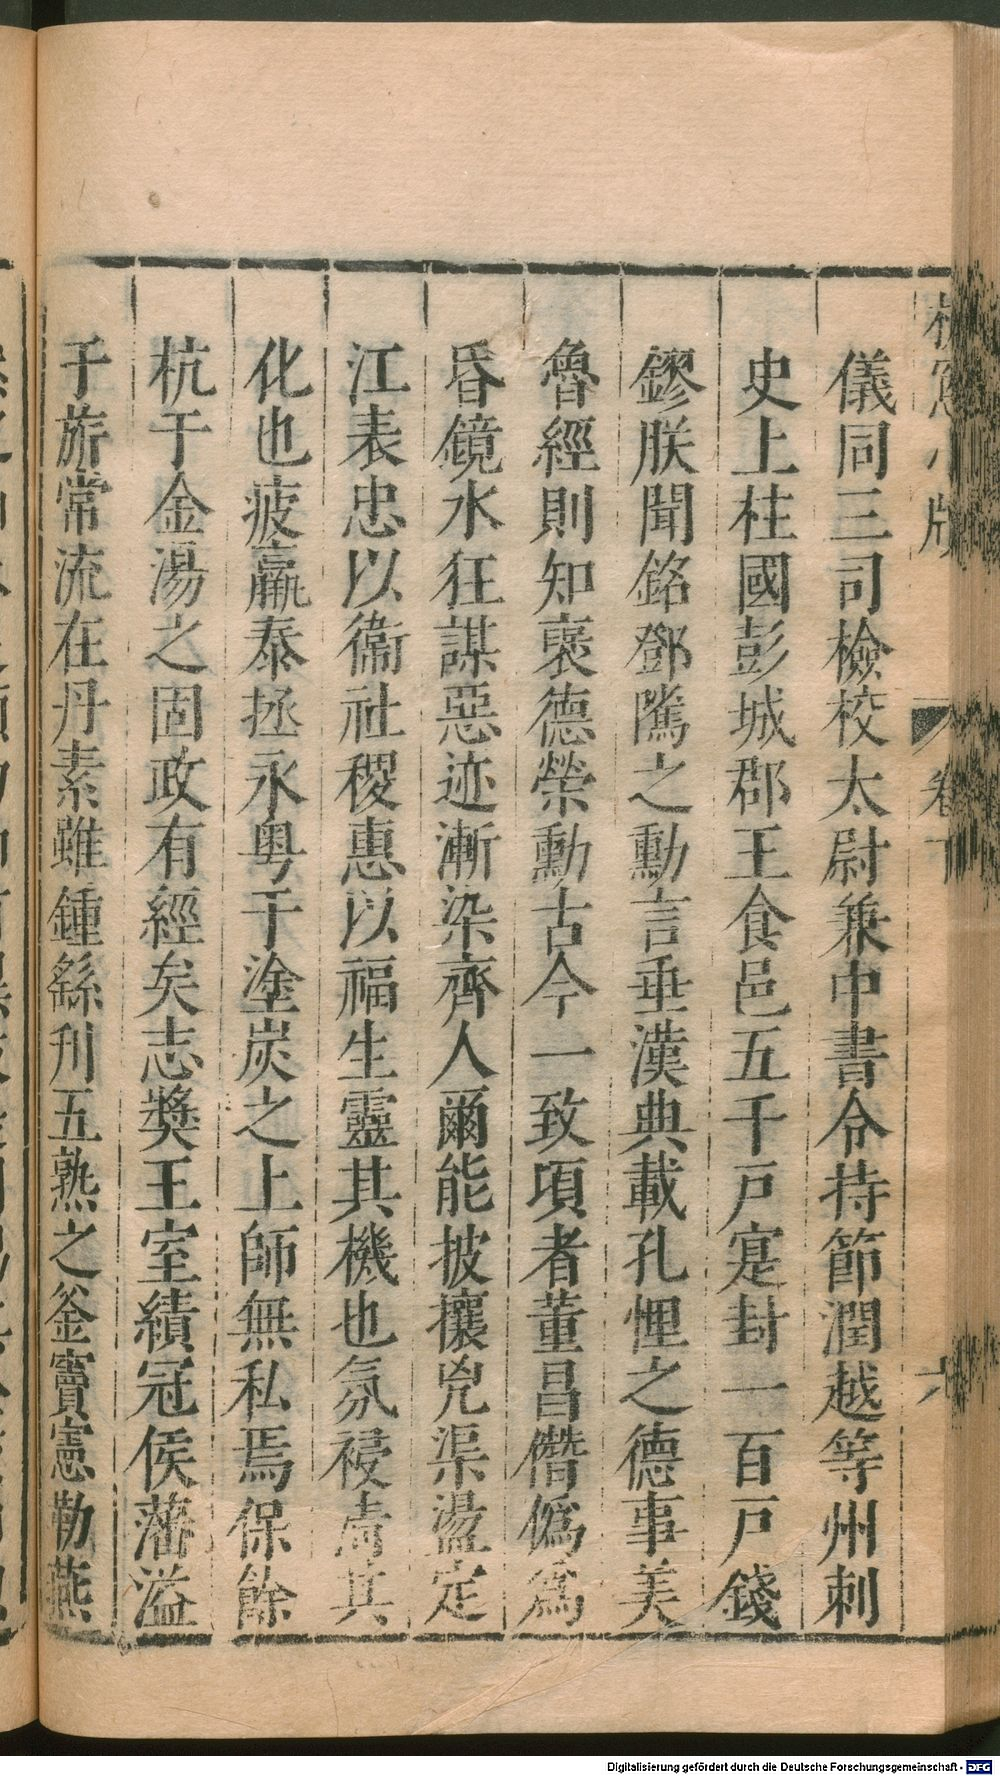 儀同三司檢校太尉兼中書令持節潤越等州刺
史上柱國彭城郡王食邑五千戸寔封一百戸錢
鏐朕聞銘鄧隲之勳言垂漢典載孔悝之德事美
魯經則知襃德榮勳古今一致頃者董昌僭僞爲
昏鏡水狂謀惡迹漸染齊人爾能披攘兇渠盪定
江表忠以衞社稷惠以福生靈其機也氛祲淸其
化也疲羸泰拯永粤于塗炭之上師無私焉保餘
杭于金湯之固政有經矣志奬王室績冠侯藩溢
于旂常流在丹素雖鍾繇刋五熟之釜竇憲勒燕
卷下
六
Digitalisierung gefördert durch die Deutsche Forschungsgemeinschaft - DFG